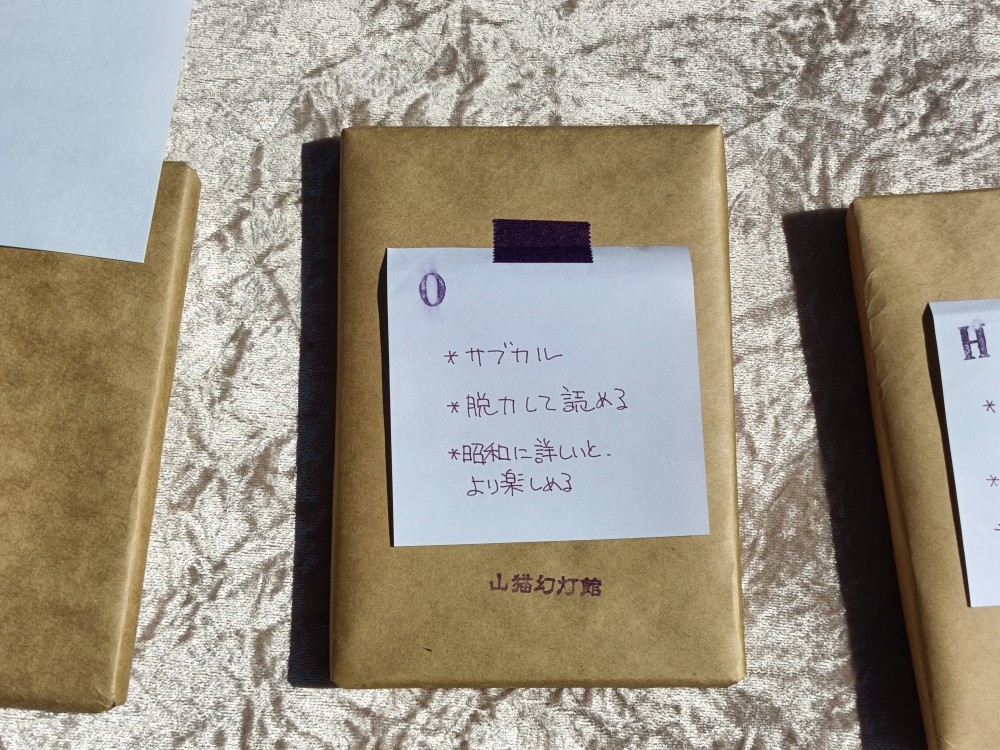 O
*サブカル
*脱力して読める
*昭和に詳しいと、
より楽しめる
山猫幻灯館
H
*
*